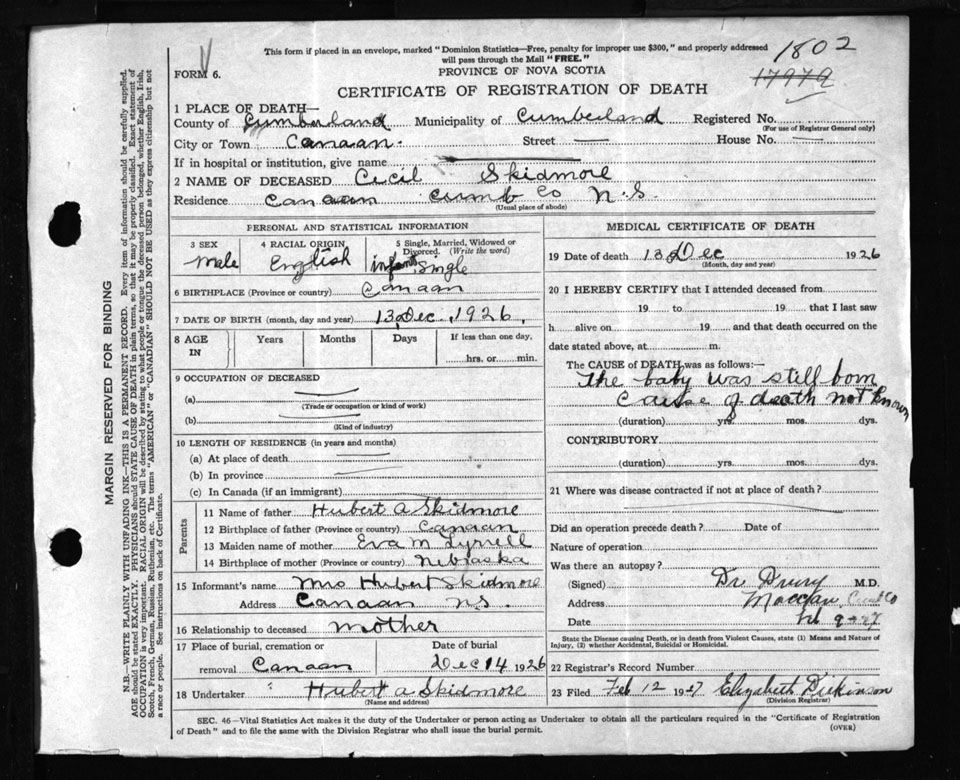 This form if placed in an envelope, marked "Dominion Statistics—Free, penalty for improper use $300," and properly addressed
will pass through the Mail "FREE."
1802
17979
FORM 6.
PROVINCE OF NOVA SCOTIA
CERTIFICATE OF REGISTRATION OF DEATH
1 PLACE OF DEATH—
County of Cumberland Municipality of Cumberland Registered No.
(For use of Registrar General only)
City or Town Canaan. Street House No.
If in hospital or institution, give name
2 NAME OF DECEASED Cecil Skidmore
Residence Canaan Cumb Co N.S.
(Usual place of abode)
PERSONAL AND STATISTICAL INFORMATION
3 SEX 4 RACIAL ORIGIN 5 Single, Married, Widowed or
Divorced. (Write the word)
Male English infant Single
6 BIRTHPLACE (Province or country) Canaan
7 DATE OF BIRTH (month, day and year) 13 Dec. 1926.
8 AGE IN Years Months Days If less than one day,
hrs. or min.
9 OCCUPATION OF DECEASED
(a)
(Trade or occupation or kind of work)
(b)
(Kind of industry)
10 LENGTH OF RESIDENCE (in years and months)
(a) At place of death
(b) In province
(c) In Canada (if an immigrant)
Parents
11 Name of father Hubert A Skidmore
12 Birthplace of father (Province or country) Canaan
13 Maiden name of mother Eva M Tyrell
14 Birthplace of mother (Province or country) Nebraska
15 Informant's name Mrs Hubert Skidmore
Address Canaan N.S.
16 Relationship to deceased mother
17 Place of burial, cremation or Date of burial
removal Canaan Dec 14 1926
18 Undertaker Hubert A Skidmore
(Name and address)
MEDICAL CERTIFICATE OF DEATH
19 Date of death 13 Dec 1926
(Month, day and year)
20 I HEREBY CERTIFY that I attended deceased from
19 to 19 that I last saw
h alive on 19 and that death occurred on the
date stated above, at m.
The CAUSE OF DEATH was as follows:—
The baby was still born
Cause of death not known
(duration) yrs. mos. dys.
CONTRIBUTORY
(duration) yrs. mos. dys.
21 Where was disease contracted if not at place of death?
Did an operation precede death? Date of
Nature of operation
Was there an autopsy?
(Signed) Dr Drury M.D.
Address Maccan, Cumb Co
Date Feb 9-27
State the Disease causing Death, or in death from Violent Causes, state (1) Means and Nature of
Injury, (2) whether Accidental, Suicidal or Homicidal.
22 Registrar's Record Number
23 Filed Feb 12 1927 Elizabeth Dickinson
(Division Registrar)
SEC. 46—Vital Statistics Act makes it the duty of the Undertaker or person acting as Undertaker to obtain all the particulars required in the "Certificate of Registration
of Death" and to file the same with the Division Registrar who shall issue the burial permit.
(OVER)
MARGIN RESERVED FOR BINDING
N.B.—WRITE PLAINLY WITH UNFADING INK—THIS IS A PERMANENT RECORD. Every item of information should be carefully supplied.
AGE should be stated EXACTLY. PHYSICIANS should STATE CAUSE OF DEATH in plain terms, so that it may be properly classified. Exact statement of
OCCUPATION is very important. RACIAL ORIGIN will be described by stating to what people or tongue the deceased person belonged, whether English, Irish,
Scotch, French, German, Russian, Ruthenian, etc. The terms "AMERICAN" or "CANADIAN" SHOULD NOT BE USED as they express citizenship but not
a race or people. See instructions on back of Certificate.